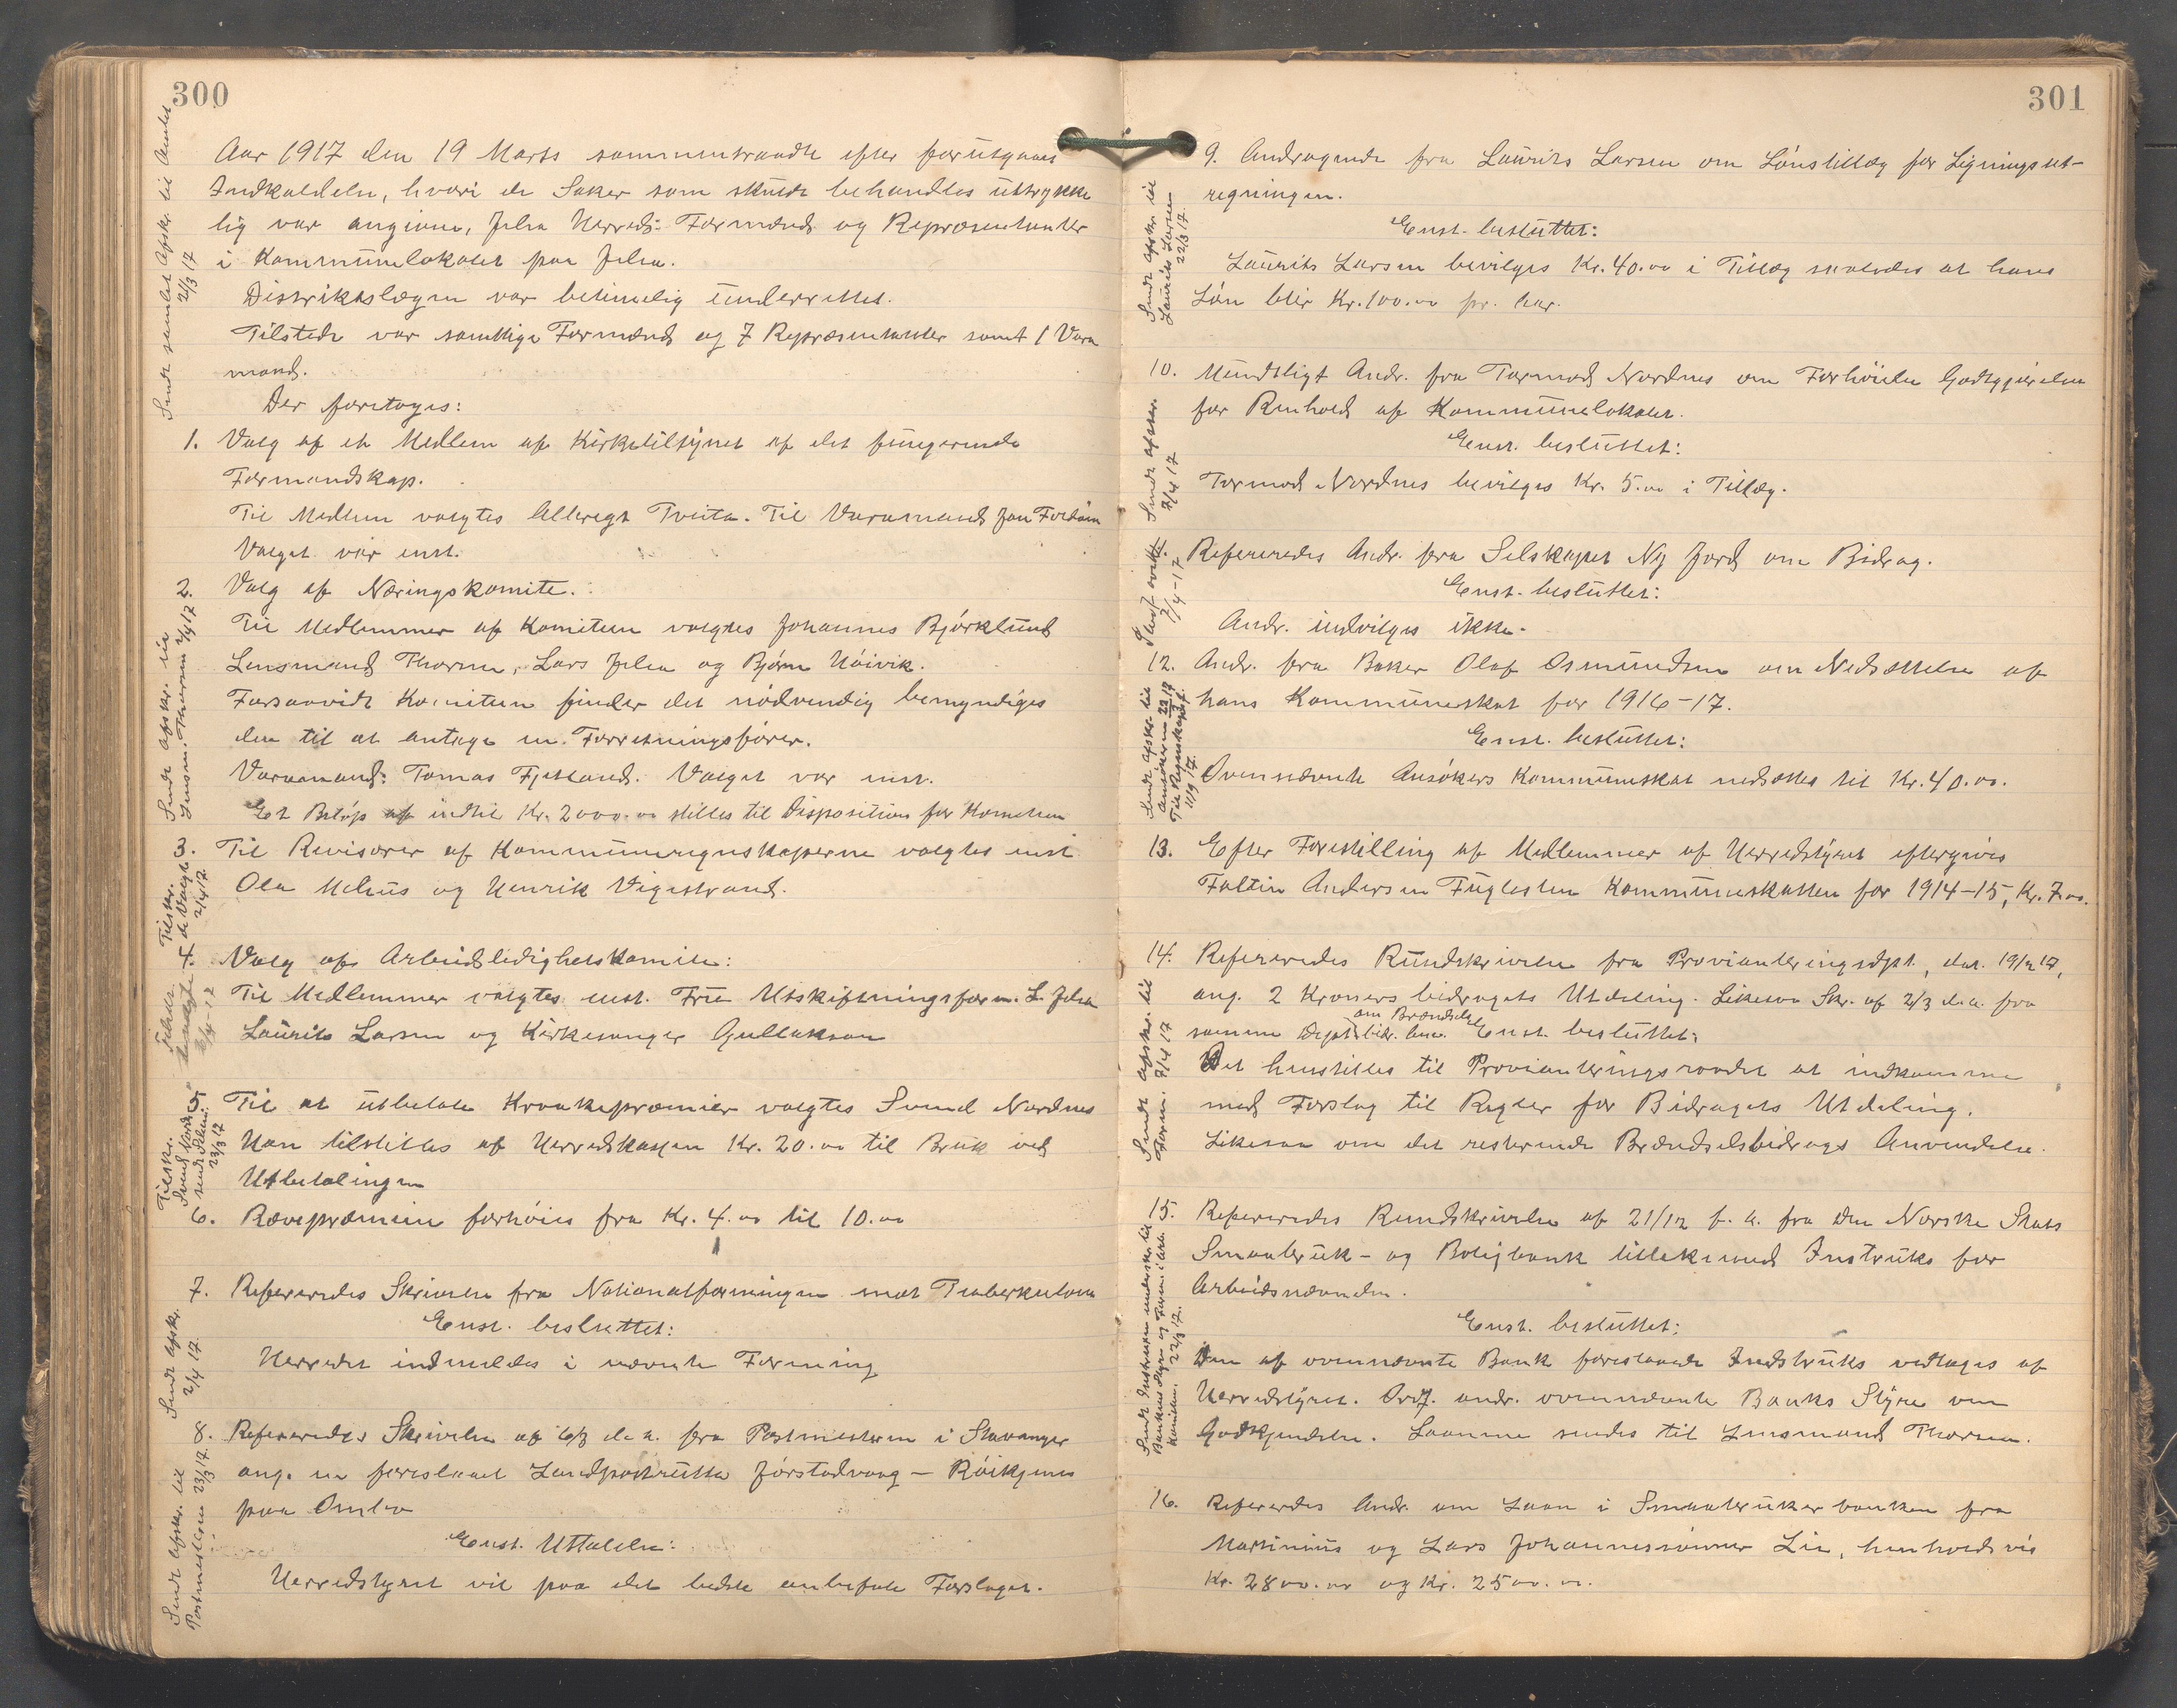 300
Aar 1917 den 19 Marts sammentraadte efter forutgaaet
Indkaldelse, hvori de Saker som skulde behandles uttrykke
lig var angivne, Jelsa Herreds Formænd og Repræsentanter
i Kommunelokalet paa Jelsa.
Distriktslægen var betimelig underrettet.
Tilstede var samtlige Formænd og 7 Repræsentanter samt 1 Vara
mand.
Der foretoges:
1. Valg af et Medlem af Kirketilsynet af det fungerende
Formandskap.
Til Medlem valgtes Allregt Tveita. Til Varamand Jon Foldøen
Valget var enst.
2. Valg af Næringskomite.
Til Medlemmer af Komiteen valgtes Johannes Bjørklund
Lensmand Thorsen, Lars Jelsa og Bjørn Høivik.
Forsaavidt Komiteen finder det nødvendig bemyndiges
den til at antage en Forretningsfører.
Varamand: Tomas Fjetland. Valget var enst.
Et Beløp af indtil Kr. 2000.00 stilles til Disposition for Komiteen
3. Til Revisorer af Kommuneregnskaperne valgtes enst
Ola Mehus og Henrik Vigestrand.
4. Valg af Arbeidsledighetskomite:
Til Medlemmer valgtes enst. Fru Utskiftningsform. L. Jelsa
Laurits Larsen og Kirkesanger Gullakson
5. Til at utbetale Kraakepræmier valgtes Svend Nordnes
Han tilstilles af Herredskassen Kr. 20.00 til Bruk ved
Utbetalingen
6. Rævepræmien forhøies fra Kr. 4.00 til 10.00
7. Refereredes Skrivelse fra Nationalforeningen mot Tuberkulosen
Enst. besluttet:
Herredet indmeldes i nævnte Forening
8. Refereredes Skrivelse af 6/3 d.a. fra Postmesteren i Stavanger
ang. en foreslaaet Landpostrute Jørstadvaag - Røikjenes
paa Ombo
Enst. Uttalelse:
Herredstyret vil paa det bedste anbefale Forslaget.
Sendt samlet Afskr. til Amtet
21/3 17
Sendt afskr. til
Lensm. Thorsen 2/4 17
Tilskr.
de Valgte
2/4 17.
Tilskr.
de valgte
2/4-17
Tilskr.
Svend Nordnes
23/3 17
Sendt Afskr.
2/4 17.
Sendt Afskr. til
Postmesteren 23/3 17.
301
9. Andragende fra Laurits Larsen om Lønstillæg for Ligningsut-
regningen.
Enst. besluttet:
Laurits Larsen bevilges Kr. 40.00 i Tillæg saaledes at hans
Løn blir Kr. 100.00 pr. Aar.
10. Mundtligt Andr. fra Tormod Nordnes om Forhøielse Godtgjørelsen
for Renhold af Kommunelokalet.
Enst. besluttet:
Tormod Nordnes bevilges Kr. 5.00 i Tillæg.
Refereredes Andr. fra Selskapet Ny Jord om Bidrag.
Enst. besluttet:
Andr. indvilges ikke.
12. Andr. fra Baker Olaf Osmundsen om Nedsættelse af
hans Kommuneskat for 1916-17.
Enst. besluttet:
Ovennævnte Ansøkers Kommuneskat nedsættes til Kr. 40.00.
13. Efter Forestilling af Medlemmer af Herredstyret eftergives
Faltin Andersen Fuglesten Kommuneskatten for 1914-15, Kr. 7.00.
14. Refereredes Rundskrivelse fra Provianteringsdept., dat. 19/2 17,
ang. 2 Kroners bidragets Utdeling. Likesaa Skr. af 2/3 d.a. fra
om Brændsels
samme Dept. bidr. Enst. besluttet:
Det henstilles til Provianteringsraadet at indkomme
med Forslag til Regler for Bidragets Utdeling.
Likesaa om det resterende Brændselsbidrags Anvendelse.
15. Refereredes Rundskrivelse af 21/12 f.a. fra Den Norske Stats
Smaabruk- og Boligbank tillikemed Instruks for
Arbeidsnævnden.
Enst. besluttet:
Den af ovennævnte Bank foreslaaede Indstruks vedtages af
Herredstyret. Ordf. andr. ovennævnte Banks Styre om
Godkjendelse. Laanene sendes til Lensmand Thorsen.
16. Refereredes Andr. om Laan i Smaabrukerbanken fra
Martinius og Lars Johannessønner Lie, henholdsvis
Kr. 2800.00 og Kr. 2500.00.
Sendt Afskr. til
Laurits Larsen
22/3 17.
Sendt afskr.
7/4 17
7/4-17
Sendt Afskr. til
Ansøkeren 22/3 17
Til Regnskapsf.
11/9 17.
Sendt Afskr. til
Form. 7/4 17
Sendt Instruxen underskr. til
Bankens Styre og Form. i Arb.
Komiteen. 22/3 17.